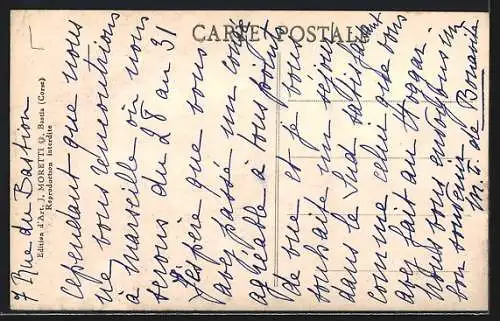 CARTE POSTALE
Edition d'Art J. MORETTI Q., Bastia (Corse)
Reproduction interdite
7 Rue du Bastion
Cependant que nous
ne vous rencontrions
à marseille où nous
serons du 28 au 31
J'espère que vous
avez passé un congé
agréable à tous points
de vue, et je vous
souhaite un séjour
dans le Sud satisfaisant
comme celui que vous
avez fait au Hoggar.
Nous vous envoyons un
bon souvenir
de Bonavita